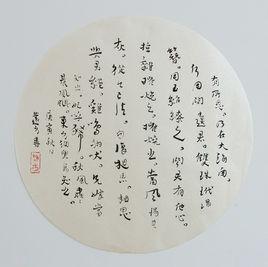 有所思。乃在大海南。
何用問遺君。雙珠玳瑁
簪。用玉紹繚之。聞君有他心。
拉雜摧燒之。摧燒之。當風揚其
灰。從今已往。勿復相思。相思
與君絕。雞鳴狗吠。兄嫂當
知之。妃呼豨。秋風肅肅
晨風颸。東方須臾高知之
庚寅秋日